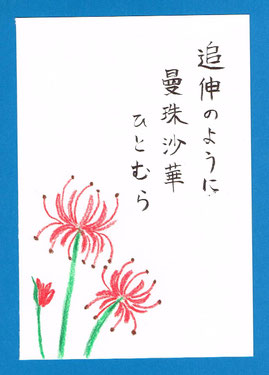 追伸のように
曼珠沙華
ひとむら